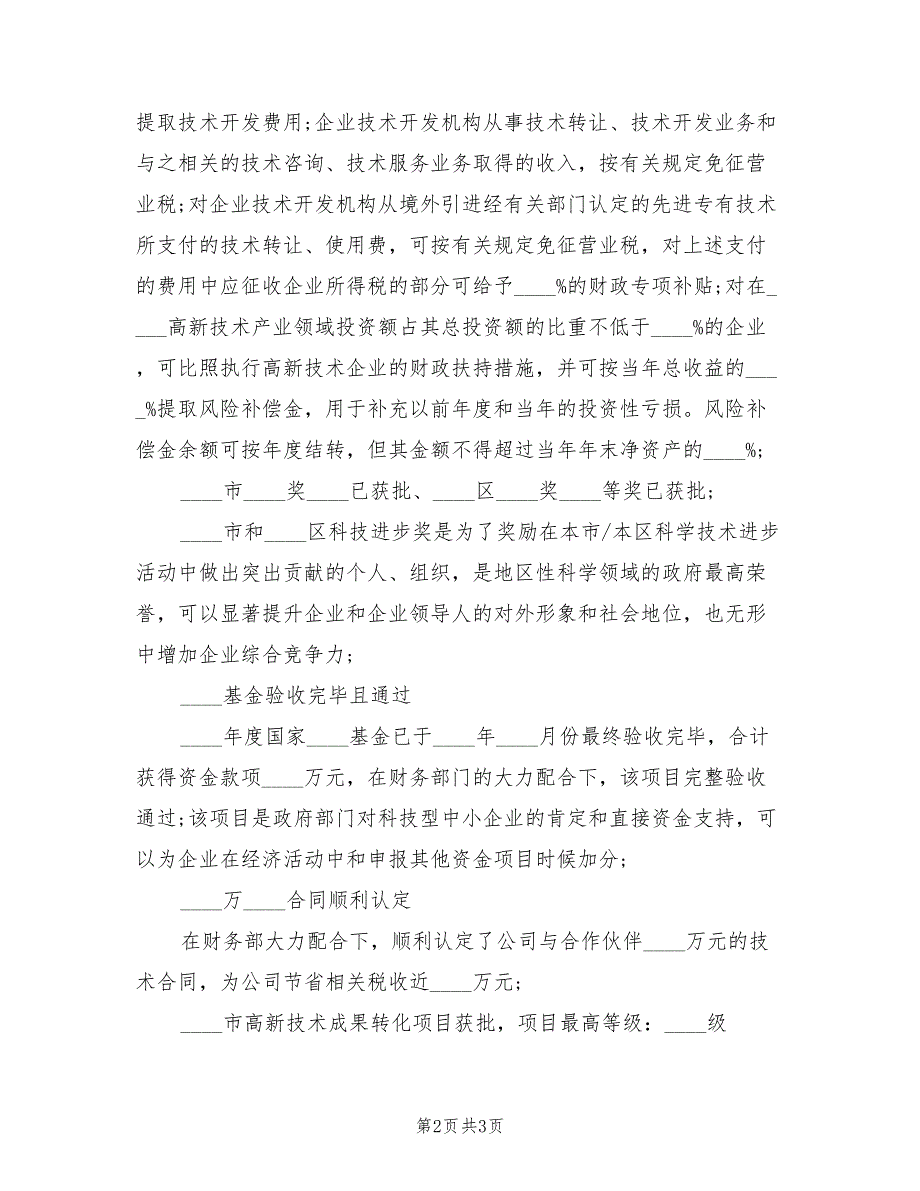 提取技术开发费用;企业技术开发机构从事技术转让、技术开发业务和
与之相关的技术咨询、技术服务业务取得的收入，按有关规定免征营
业税;对企业技术开发机构从境外引进经有关部门认定的先进专有技术
所支付的技术转让、使用费，可按有关规定免征营业税，对上述支付
的费用中应征收企业所得税的部分可给予____%的财政专项补贴;对在_
___高新技术产业领域投资额占其总投资额的比重不低于____%的企业
，可比照执行高新技术企业的财政扶持措施，并可按当年总收益的___
_%提取风险补偿金，用于补充以前年度和当年的投资性亏损。风险补
偿金余额可按年度结转，但其金额不得超过当年年末净资产的____%;
____市____奖____已获批、____区____奖____等奖已获批;
____市和____区科技进步奖是为了奖励在本市/本区科学技术进步
活动中做出突出贡献的个人、组织，是地区性科学领域的政府最高荣
誉，可以显著提升企业和企业领导人的对外形象和社会地位，也无形
中增加企业综合竞争力;
____基金验收完毕且通过
____年度国家____基金已于____年____月份最终验收完毕，合计
获得资金款项____万元，在财务部门的大力配合下，该项目完整验收
通过;该项目是政府部门对科技型中小企业的肯定和直接资金支持，可
以为企业在经济活动中和申报其他资金项目时候加分;
____万____合同顺利认定
在财务部大力配合下，顺利认定了公司与合作伙伴____万元的技
术合同，为公司节省相关税收近____万元;
____市高新技术成果转化项目获批，项目最高等级：____级
第2页共3页